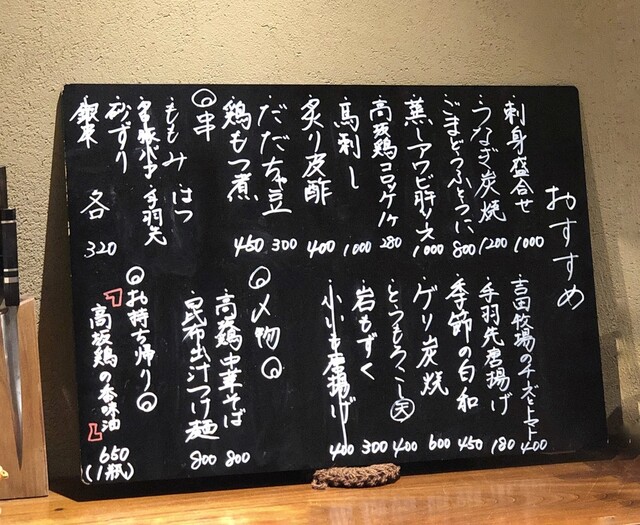 おすすめ
・刺身盛合せ 1000
・うなぎ炭焼 1200
・ごまどうふとうに 800
・蒸しアワビ肝ソース 1000
・高坂鶏コロッケ1ケ 280
・馬刺し 1000
・炙り皮酢 400
・だだちゃ豆 300
・鶏もつ煮 450
・吉田牧場のチーズとトマト 400
・手羽先唐揚げ 180
・季節の白和 450
・ゲソ炭焼 600
・とうもろこし天 400
・岩もずく 300
・小いも唐揚げ 400
◎串
・ももみ
・はつ
・手羽先
・砂ずり
・銀杏
各 320
◎〆物◎
・高坂鶏中華そば 800
・昆布出汁つけ麺 800
◎お持ち帰り◎
「高坂鶏の香味油」 650
(1瓶)